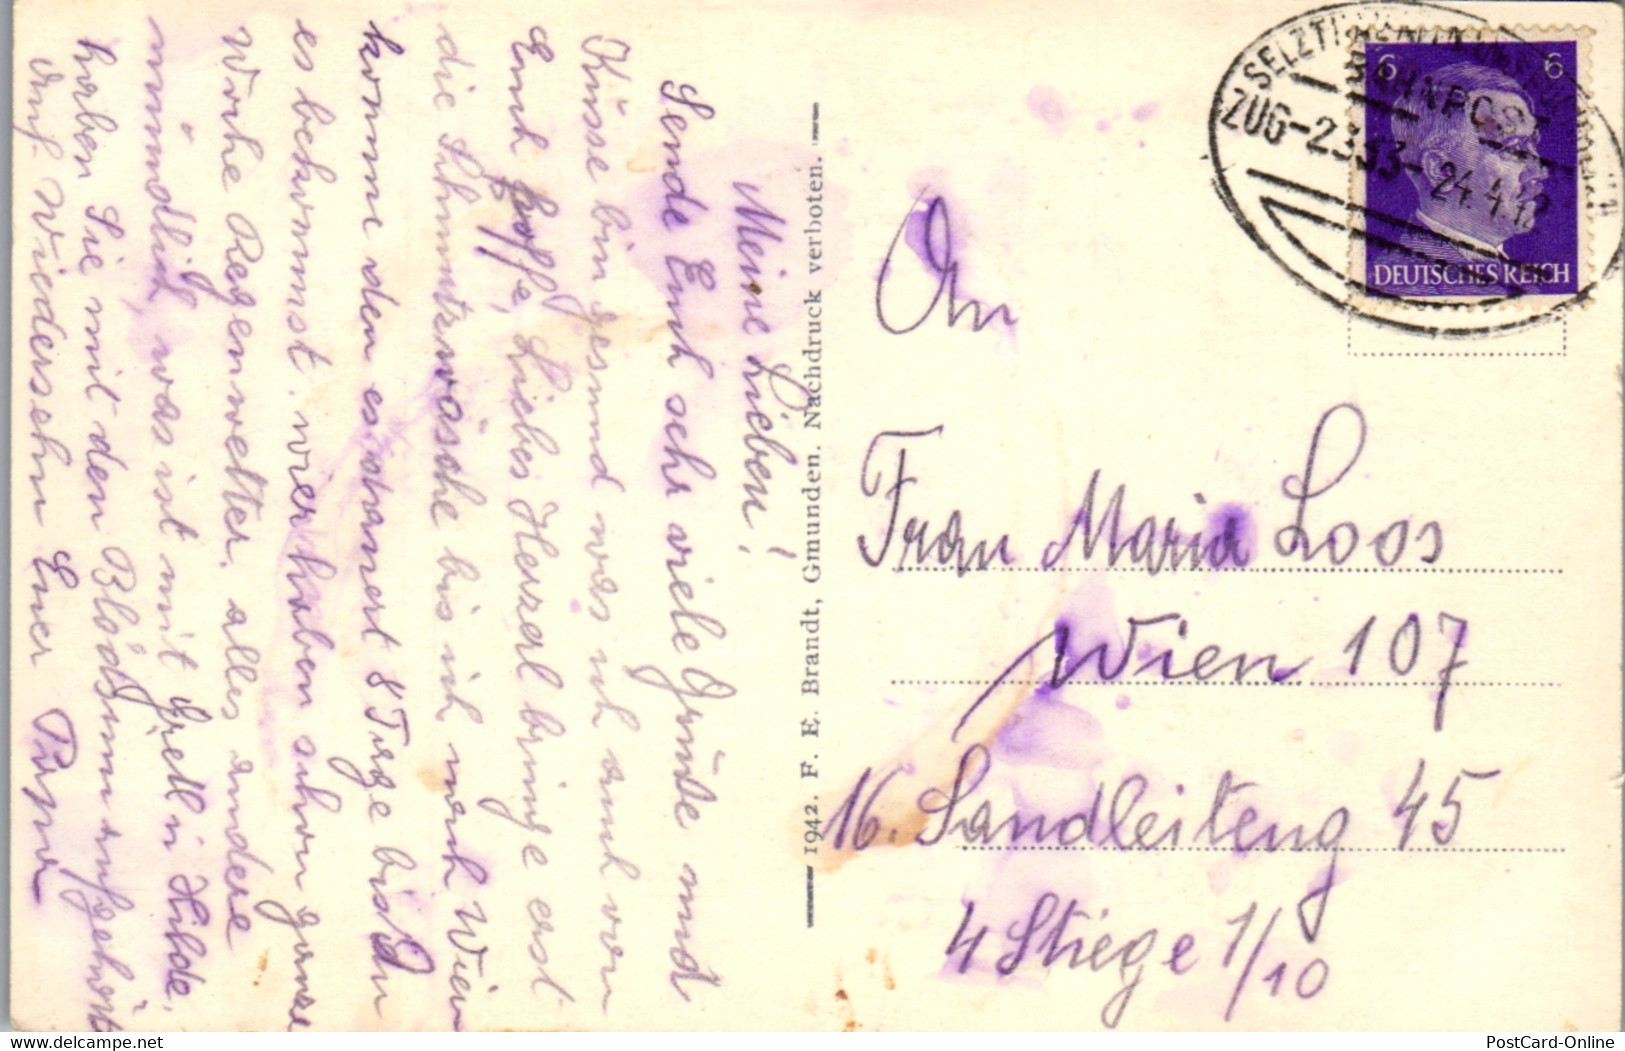 Meine Lieben!
Sende Euch sehr viele Grüße und
Küsse bin gesund was ich auch von
Euch hoffe, Liebes Herzerl bringe erst
die Schmutzwäsche bis ich nach Wien
komme den es dauert 8 Tage bis Du
es bekommst. wier haben schon ganze
Woche Regenwetter. alles andere
mündlich, was ist mit Gretl u Hilde,
haben Sie mit den Blödsinn aufgehört
Auf Wiedersehn Euer
1942. F. E. Brandt, Gmunden. Nachdruck verboten.
SELZT
BAHNPOST
ZUG-2353- 24.4.43
6 6
DEUTSCHES REICH
An
Frau Maria Loos
Wien 107
16. Sandleiteng 45
4 Stiege 1/10
PostCard-Online
delcampe.net